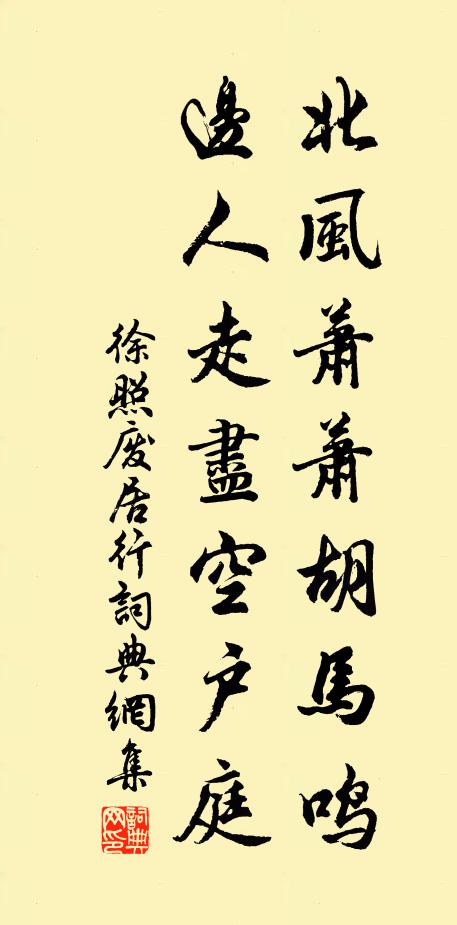 北風蕭蕭胡馬鳴
邊人走盡空户庭
徐照廢居行詞典網集
詞典网印